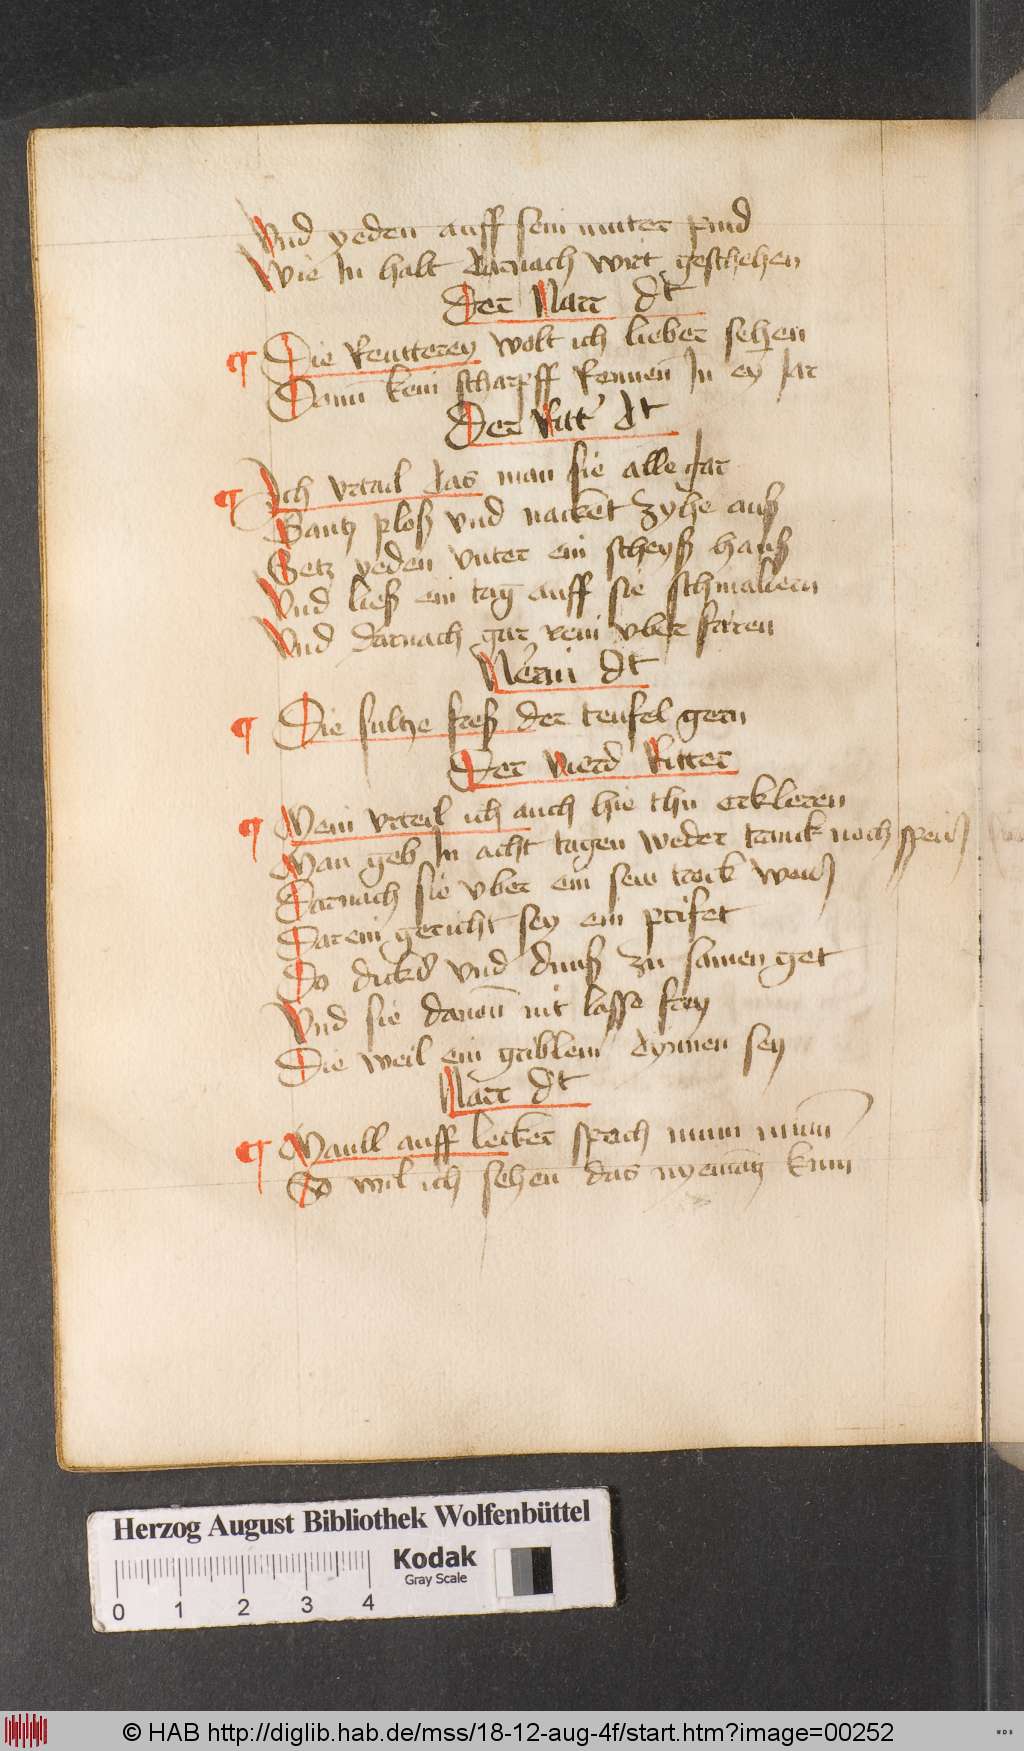 Vnd yeden auff sein muter pind
Wie In halt darnach wirt geschehen
Der Narr dt
¶ Die Reutterey wolt ich lieber sehen
Dann̄ kein scharpff Rennen̄ In ey̅ Jar
Der Ritt' dt
¶ Ich vrtail das man sie alle Jar
Gantz ploß vnd nacket zyhe auß
Setz yeden vnter ein scheyß hauß
Vnd ließ ein tag auff sie schmaliern
Vnd darnach gar rein vber friren
Nerrin dt
¶ Die sultze freß der teufel gern
Der vierd Ritter
¶ Mein vrteil ich auch hie thu erkleren
Man geb In acht tagen weder tranck noch speiß
Darnach sie vber ein sew trock weiß
Dar ein gericht sey ein prifet
Do dick vnd dunß zu samen get
Vnd sie danon̄ nit lasse frey
Die weil ein griblein dynnen sey
Narr dt
¶ Maull auff lecker sprach mum mum
So wil ich sehen das nyemātz kum
Herzog August Bibliothek Wolfenbüttel
Kodak
Gray Scale
0 1 2 3 4
© HAB http://diglib.hab.de/mss/18-12-aug-4f/start.htm?image=00252